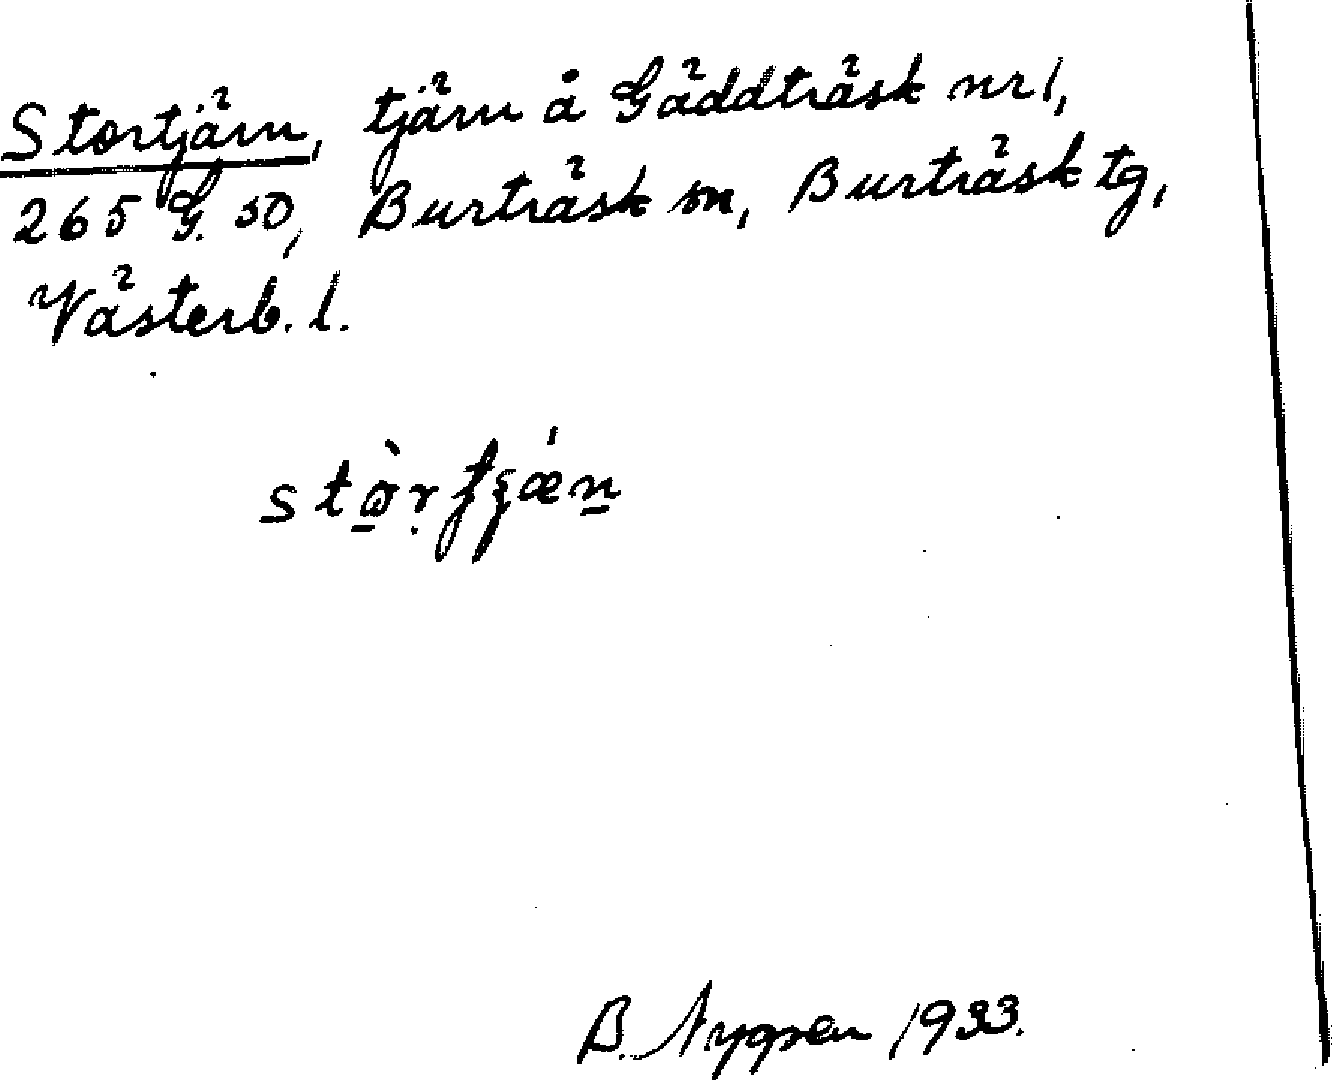 Stortjärn, tjärn å Gäddträsk nr 1,
265 G. SO, Burträsk sn, Burträsk tg,
Västerb. l.
B. Nygren 1933.